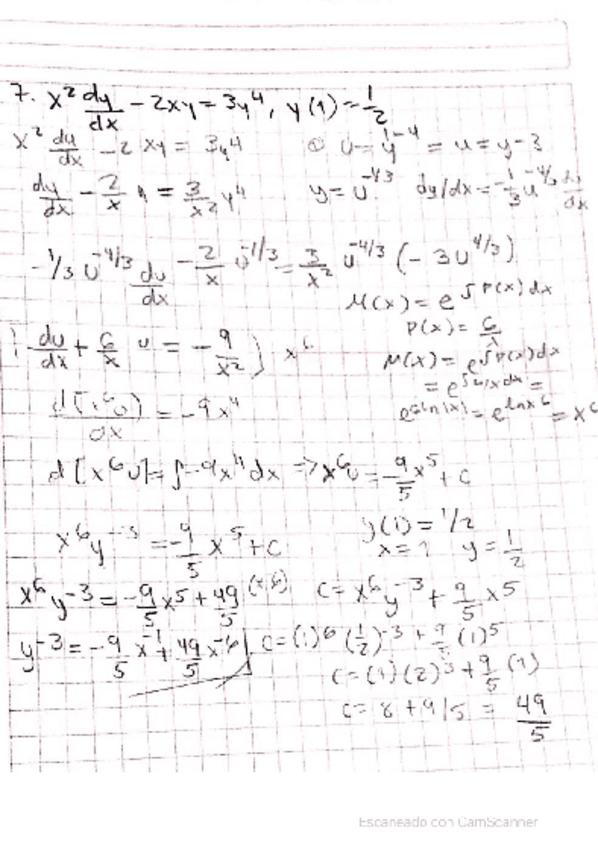 7. x² dy/dx - 2xy = 3y⁴, y(1) = 1/2
x² dy/dx - 2xy = 3y⁴ u = y¹⁻⁴ = u = y-3
dy/dx - 2/x y = 3/x² y⁴ y = u^-1/3 dy/dx = -1/3 u^-4/3 du/dx
-1/3 u^-4/3 du/dx - 2/x u^-1/3 = 3/x² u^-4/3 (-3u^4/3)
M(x) = e^∫P(x)dx
P(x) = 6/x
du/dx + 6/x u = -9/x² ) x⁶
M(x) = e^∫P(x)dx
= e^∫6/x dx =
e^6ln|x| = e^lnx6 = x⁶
d[x⁶u]/dx = -9x⁴
d[x⁶u] = ∫-9x⁴dx => x⁶u = -9/5 x⁵ + c
x⁶y⁻³ = -9/5 x⁵ + c
y(1) = 1/2
x = 1 y = 1/2
x⁶y⁻³ = -9/5 x⁵ + 49/5 (x⁻⁶)
c = x⁶y⁻³ + 9/5 x⁵
y⁻³ = -9/5 x⁻¹ + 49/5 x⁻⁶
c = (1)⁶(1/2)⁻³ + 9/5 (1)⁵
c = (1)(2)³ + 9/5 (1)
c = 8 + 9/5 = 49/5
Escaneado con CamScanner